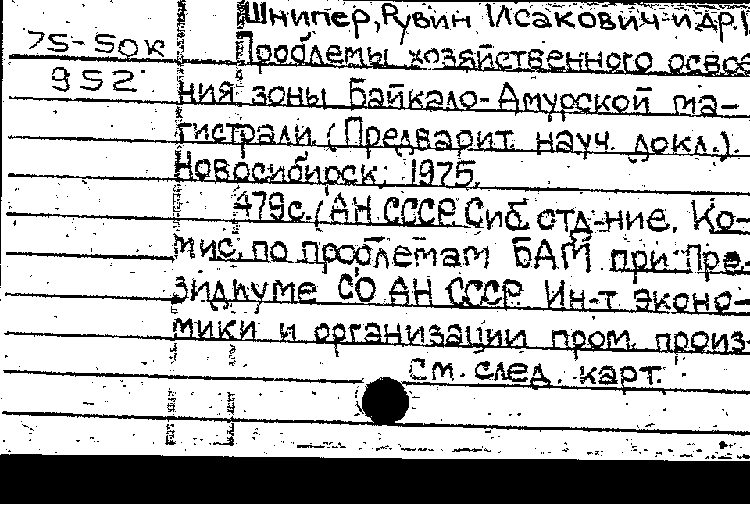 Шнипер, Рувин Исакович и др.
75-50к
Проблемы хозяйственного освое
952
ния зоны Байкало-Амурской ма-
гистрали. (Предварит. науч. докл.).
Новосибирск, 1975.
479с. (АН СССР. Сиб. отд-ние. Ко-
мис. по проблемам БАМ при Пре-
зидиуме СО АН СССР. Ин-т эконо-
мики и организации пром. произ-
См. след. карт.